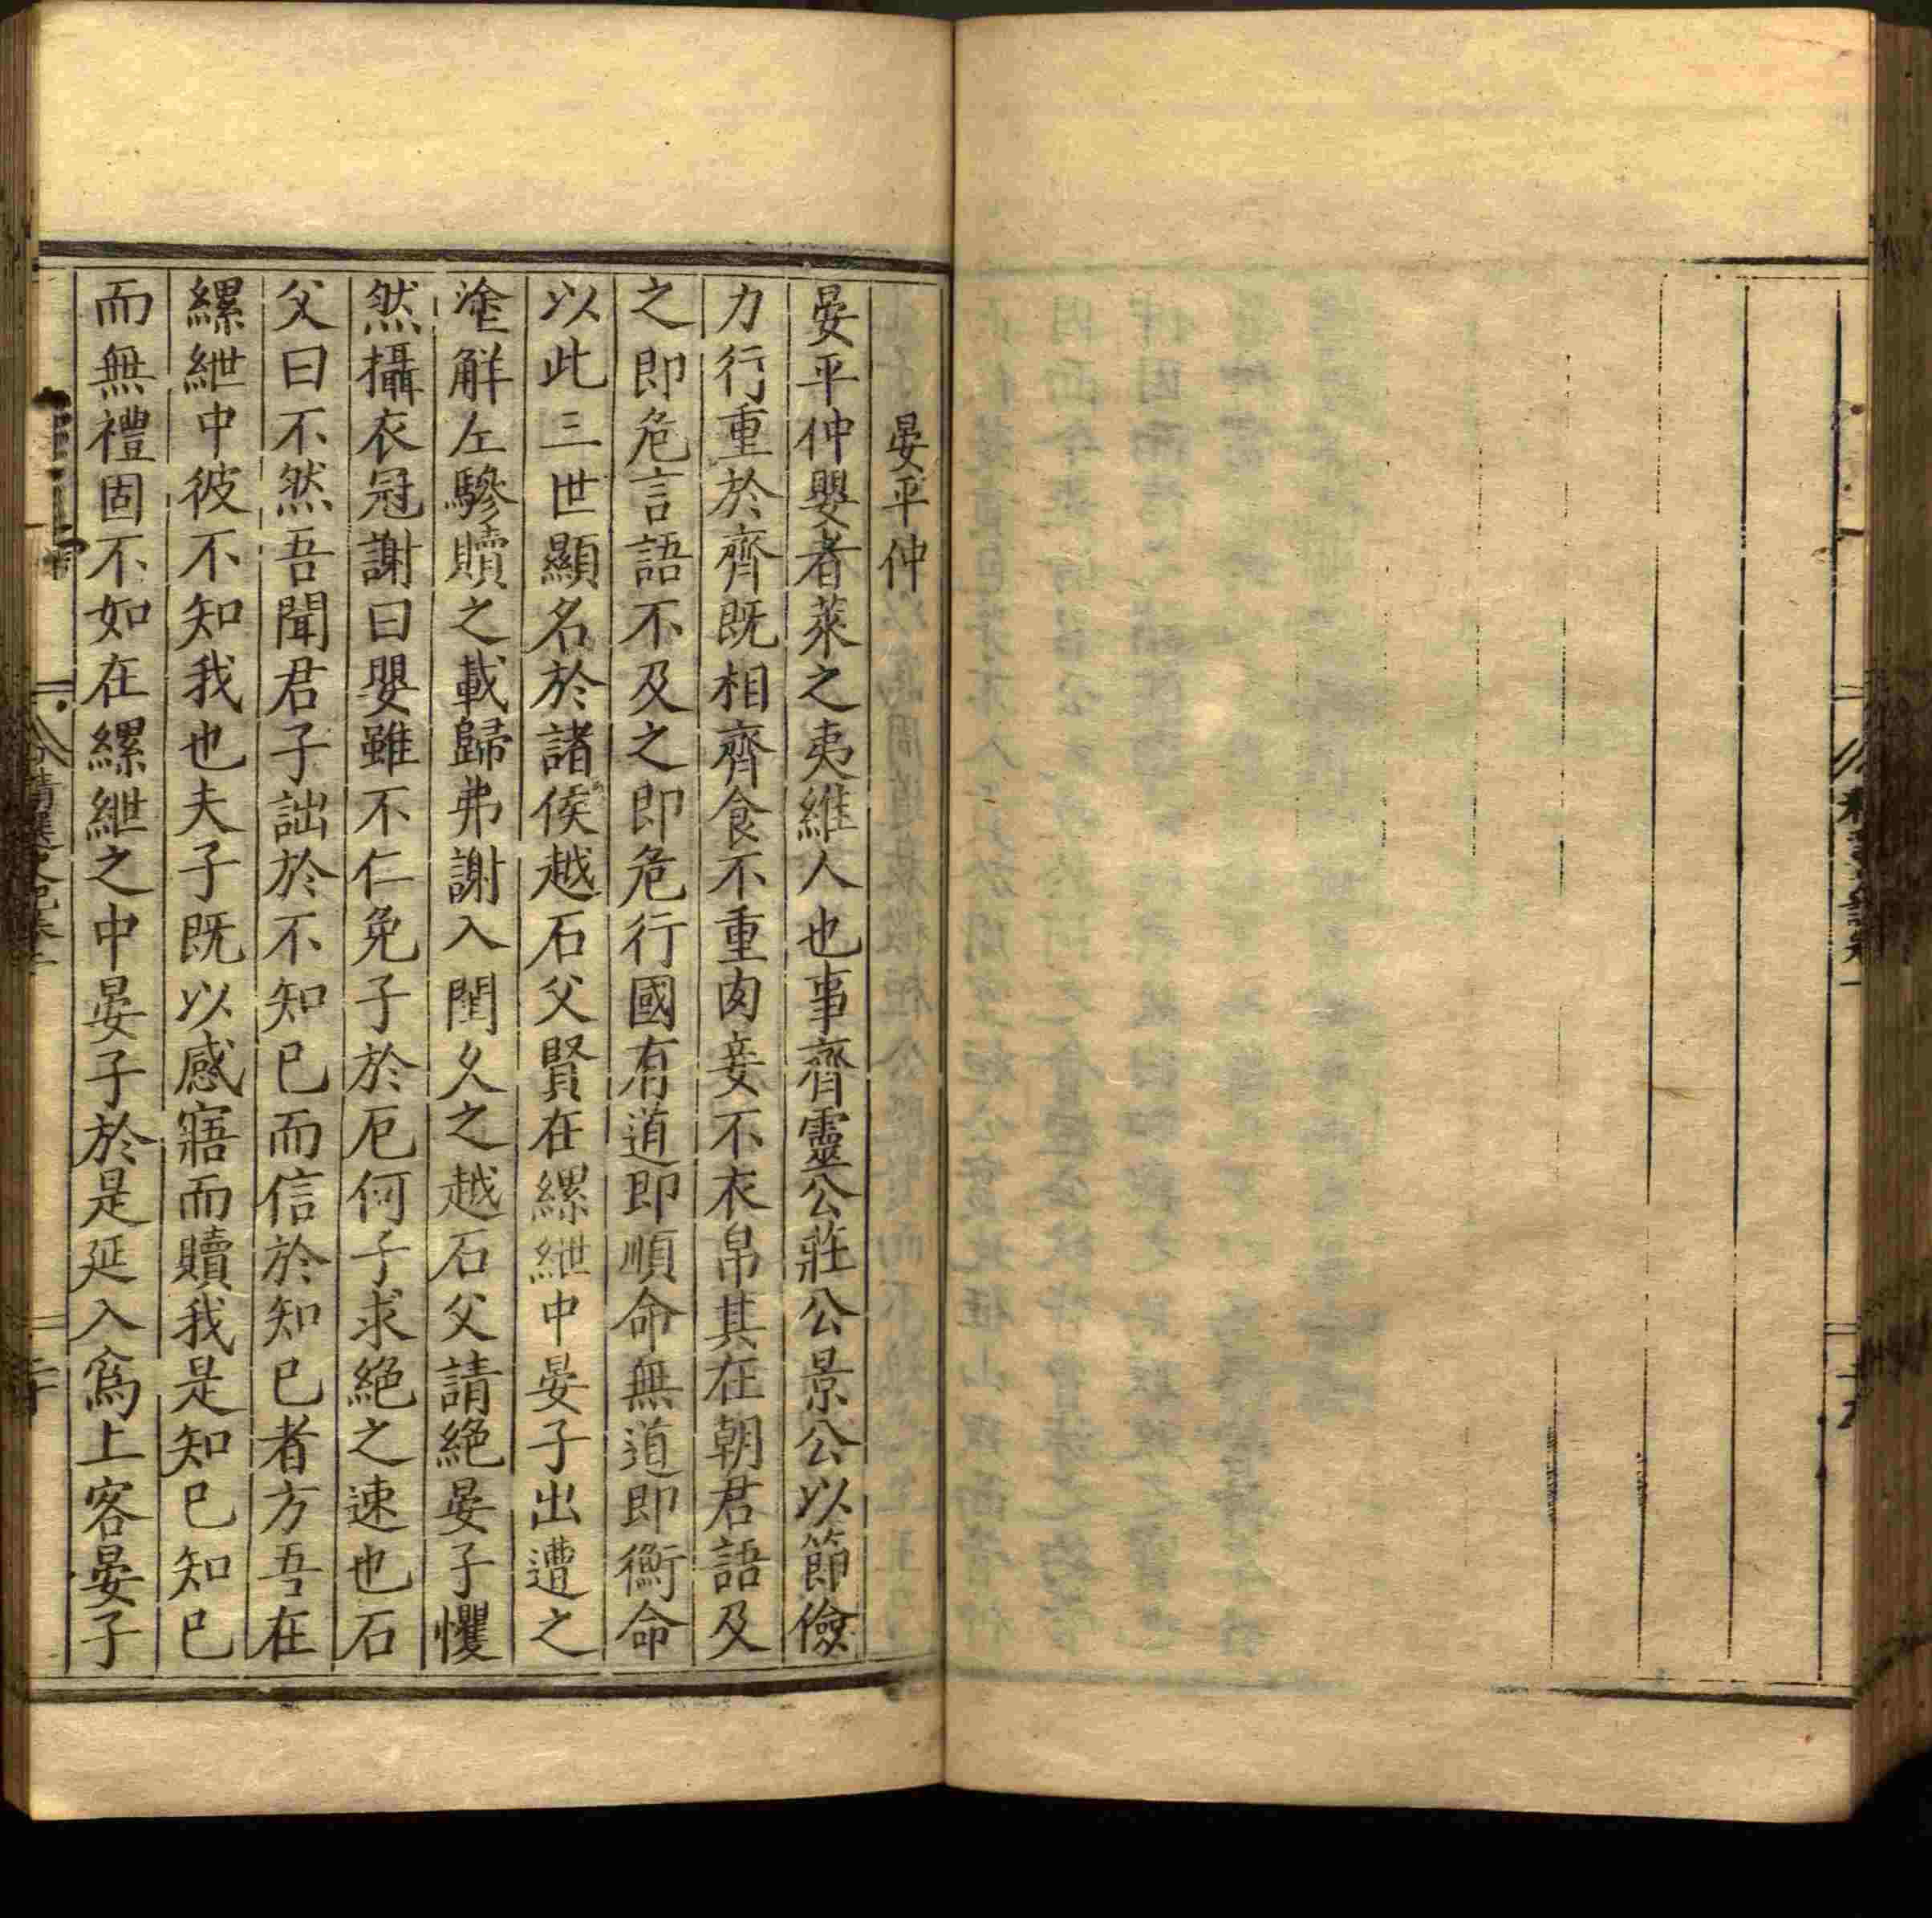 晏平仲
晏平仲嬰者萊之夷維人也事齊靈公莊公景公以節儉
力行重於齊既相齊食不重肉妾不衣帛其在朝君語及
之即危言語不及之即危行國有道即順命無道即衡命
以此三世顯名於諸侯越石父賢在縲紲中晏子出遭之
塗解左驂贖之載歸弗謝入閨久之越石父請絶晏子懼
然攝衣冠謝曰嬰雖不仁免子於厄何子求絶之速也石
父曰不然吾聞君子詘於不知已而信於知已者方吾在
縲紲中彼不知我也夫子既以感寤而贖我是知已知已
而無禮固不如在縲紲之中晏子於是延入爲上客晏子